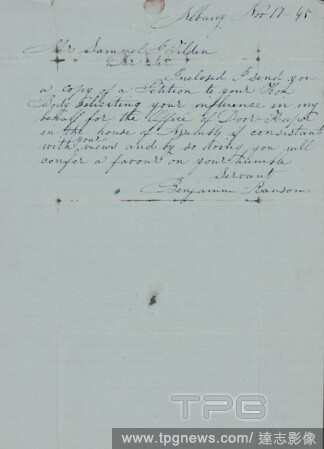 Albany Nov 17 - 45
Mr Samuel J Tilden
Dear Sir
Inclosed I send you
a copy of a Petition to your Hon
Body Soliciting your influence in my
behalf for the office of Door Keeper
in the house of Assembly if consistant
with your views and by so doing you will
confer a favour on your humble
Servant
Benjamin Ransom
TPG
www.tpgnews.com / 達志影像